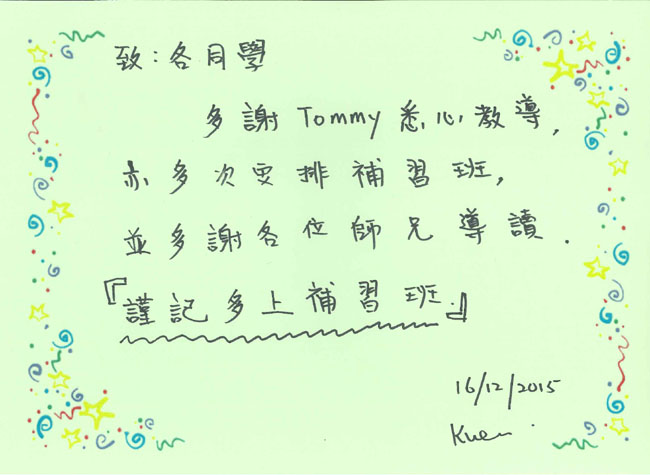 致：各同學
多謝Tommy悉心教導，
亦多次安排補習班，
並多謝各位師兄導讀．
『謹記多上補習班．』
16/12/2015